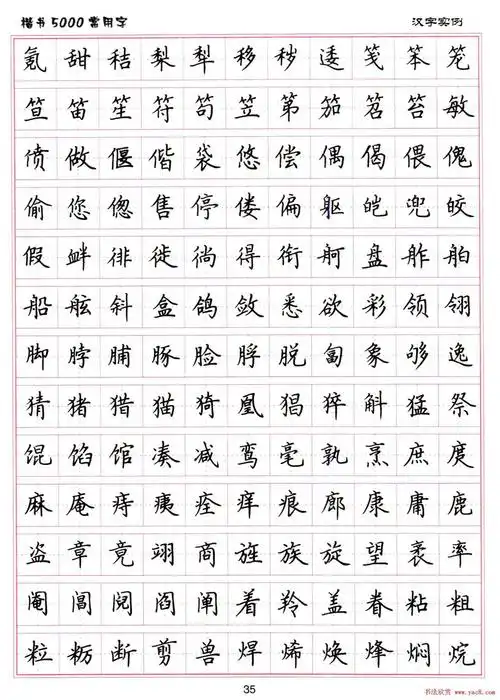 楷书5000常用字 汉字实例
氪 甜 秸 梨 犁 移 秽 逶 笺 笨 笼
笪 笛 笙 符 笱 笠 第 笳 笤 答 敏
偾 做 偃 偕 袋 悠 偿 偶 偈 偎 傀
偷 您 偬 售 停 偻 偏 躯 皑 兜 皎
假 衅 徘 徙 徜 得 衔 舸 盘 舴 舶
船 舷 斜 盒 鸽 敛 悉 欲 彩 领 翎
脚 脖 脯 豚 脸 脬 脱 匐 象 够 逸
猜 猪 猎 猫 猗 凰 猖 猝 斛 猛 祭
馄 馅 馆 凑 减 鸾 毫 孰 烹 庶 庹
麻 庵 痔 痍 痊 痒 痕 廊 康 庸 鹿
盗 章 竟 翊 商 旌 族 旋 望 袤 率
阉 阊 阅 阎 阐 着 羚 盖 眷 粘 粗
粒 粝 断 剪 兽 焊 烯 焕 烽 焖 烷
35
书法欣赏 www.yac8.com